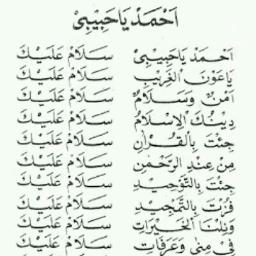 اَحْمَدْ يَاحَبِيْبِىْ
اَحْمَدْ يَاحَبِيْبِىْ سَلَامٌ عَلَيْكَ
يَاعَوْنَ الْغَرِيْبِ سَلَامٌ عَلَيْكَ
اَمْنٌ وَسَلَامٌ سَلَامٌ عَلَيْكَ
دِيْنُكَ الْاِسْلَامُ سَلَامٌ عَلَيْكَ
جِئْتَ بِالْقُرْاٰنِ سَلَامٌ عَلَيْكَ
مِنْ عِنْدِ الرَّحْمٰنِ سَلَامٌ عَلَيْكَ
جِئْتَ بِالتَّوْحِيْدِ سَلَامٌ عَلَيْكَ
فُزْتَ بِالتَّمْجِيْدِ سَلَامٌ عَلَيْكَ
وَنِلْنَا الْخَيْرَاتِ سَلَامٌ عَلَيْكَ
فِىْ مِنٰى وَعَرَفَاتِ سَلَامٌ عَلَيْكَ